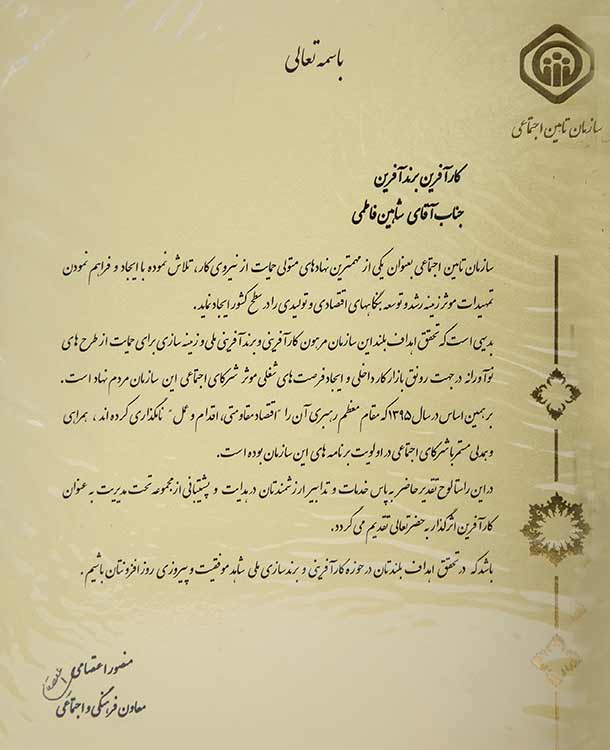 باسمه تعالی
سازمان تامین اجتماعی
کارآفرین برند آفرین
جناب آقای شاهین فاطمی
سازمان تامین اجتماعی بعنوان یکی از مهمترین نهادهای متولی حمایت از نیروی کار، تلاش نموده با ایجاد و فراهم نمودن
تمهیدات موثر زمینه رشد و توسعه بنگاههای اقتصادی و تولیدی را در سطح کشور ایجاد نماید.
بدیهی است که تحقق اهداف بلند این سازمان مرهون کارآفرینی و برندآفرینی ملی و زمینه سازی برای حمایت از طرح های
نوآورانه در جهت رونق بازار کار داخلی و ایجاد فرصت های شغلی موثر شرکای اجتماعی این سازمان مردم نهاد است.
بر همین اساس در سال ۱۳۹۵ که مقام معظم رهبری آن را "اقتصاد مقاومتی، اقدام و عمل" نامگذاری کرده اند، همراهی
و همدلی مستمر با شرکای اجتماعی در اولویت برنامه های این سازمان بوده است.
در این راستا لوح تقدیر حاضر به پاس خدمات و تدابیر ارزشمندتان در هدایت و پشتیبانی از مجموعه تحت مدیریت به عنوان
کارآفرین اثرگذار به حضرتعالی تقدیم می گردد.
باشد که در تحقق اهداف بلندتان در حوزه کارآفرینی و برندسازی ملی شاهد موفقیت و پیروزی روز افزونتان باشیم.
منصور اعتصامی
معاون فرهنگی و اجتماعی